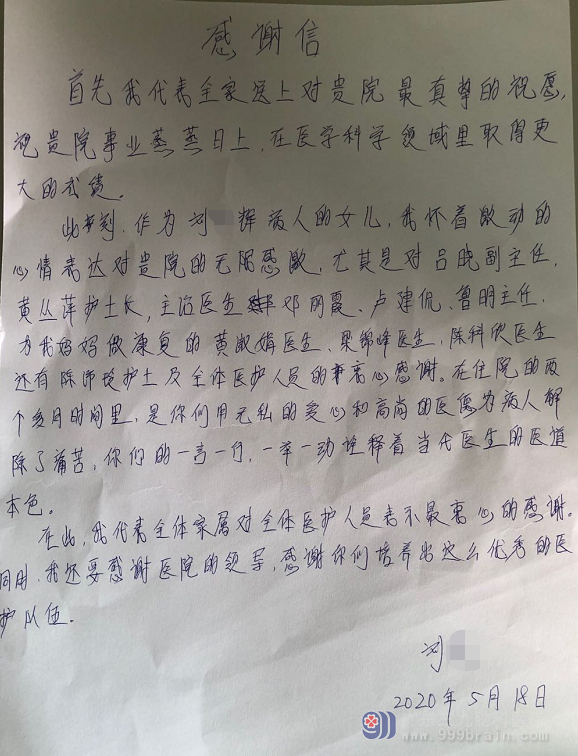 感谢信
首先我代表全家送上对贵院最真挚的祝愿,
祝贵院事业蒸蒸日上,在医学科学领域里取得更
大的成绩。
此时刻,作为刘 辉病人的女儿,我怀着激动的
心情表达对贵院的无限感激,尤其是对吕晓副主任,
黄丛萍护士长,主治医生邓丽霞、卢建侃、鲁明主任,
为我妈妈做康复的黄淑娟医生、梁锦峰医生,陈科欣医生
还有陈 护士及全体医护人员的衷心感谢。在住院的两
个多月时间里,是你们用无私的爱心和高尚的医德为病人解
除了痛苦,你们的一言一行,一举一动诠释着当代医生的医道
本色。
在此,我代表全体家属对全体医护人员表示最衷心的感谢。
同时,我还要感谢医院的领导,感谢你们培养出这么优秀的医
护队伍。
刘
2020年5月18日
www.999brain.com